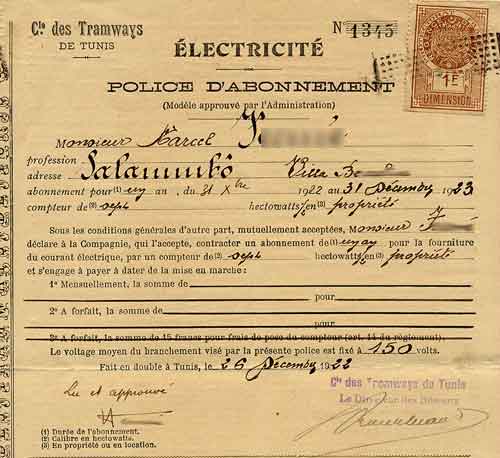 Cie des Tramways
DE TUNIS
No 1345
1F
DIMENSION
ÉLECTRICITÉ
POLICE D'ABONNEMENT
(Modèle approuvé par l'Administration)
Monsieur Marcel
profession
adresse Salammbô Villa
abonnement pour(1) un an. du 31 Xbre 1922 au 31 Décembre 1923
compteur de(2) sept hectowatts(3) en propriété
Sous les conditions générales d'autre part, mutuellement acceptées, Monsieur
déclare à la Compagnie, qui l'accepte, contracter un abonnement de(1) un an pour la fourniture
du courant électrique, par un compteur de(2) sept hectowatts(3) en propriété
et s'engage à payer à dater de la mise en marche:
1° Mensuellement, la somme de
pour
2° A forfait, la somme de
pour
3° A forfait, la somme de 15 francs pour frais de pose du compteur (art. 14 du règlement).
Le voltage moyen du branchement visé par la présente police est fixé à 150 volts.
Fait en double à Tunis, le 26 Décembre 1922
Lu et approuvé
Cie des Tramways de Tunis
Le Directeur des Réseaux
(1) Durée de l'abonnement.
(2) Calibre en hectowatts.
(3) En propriété ou en location.